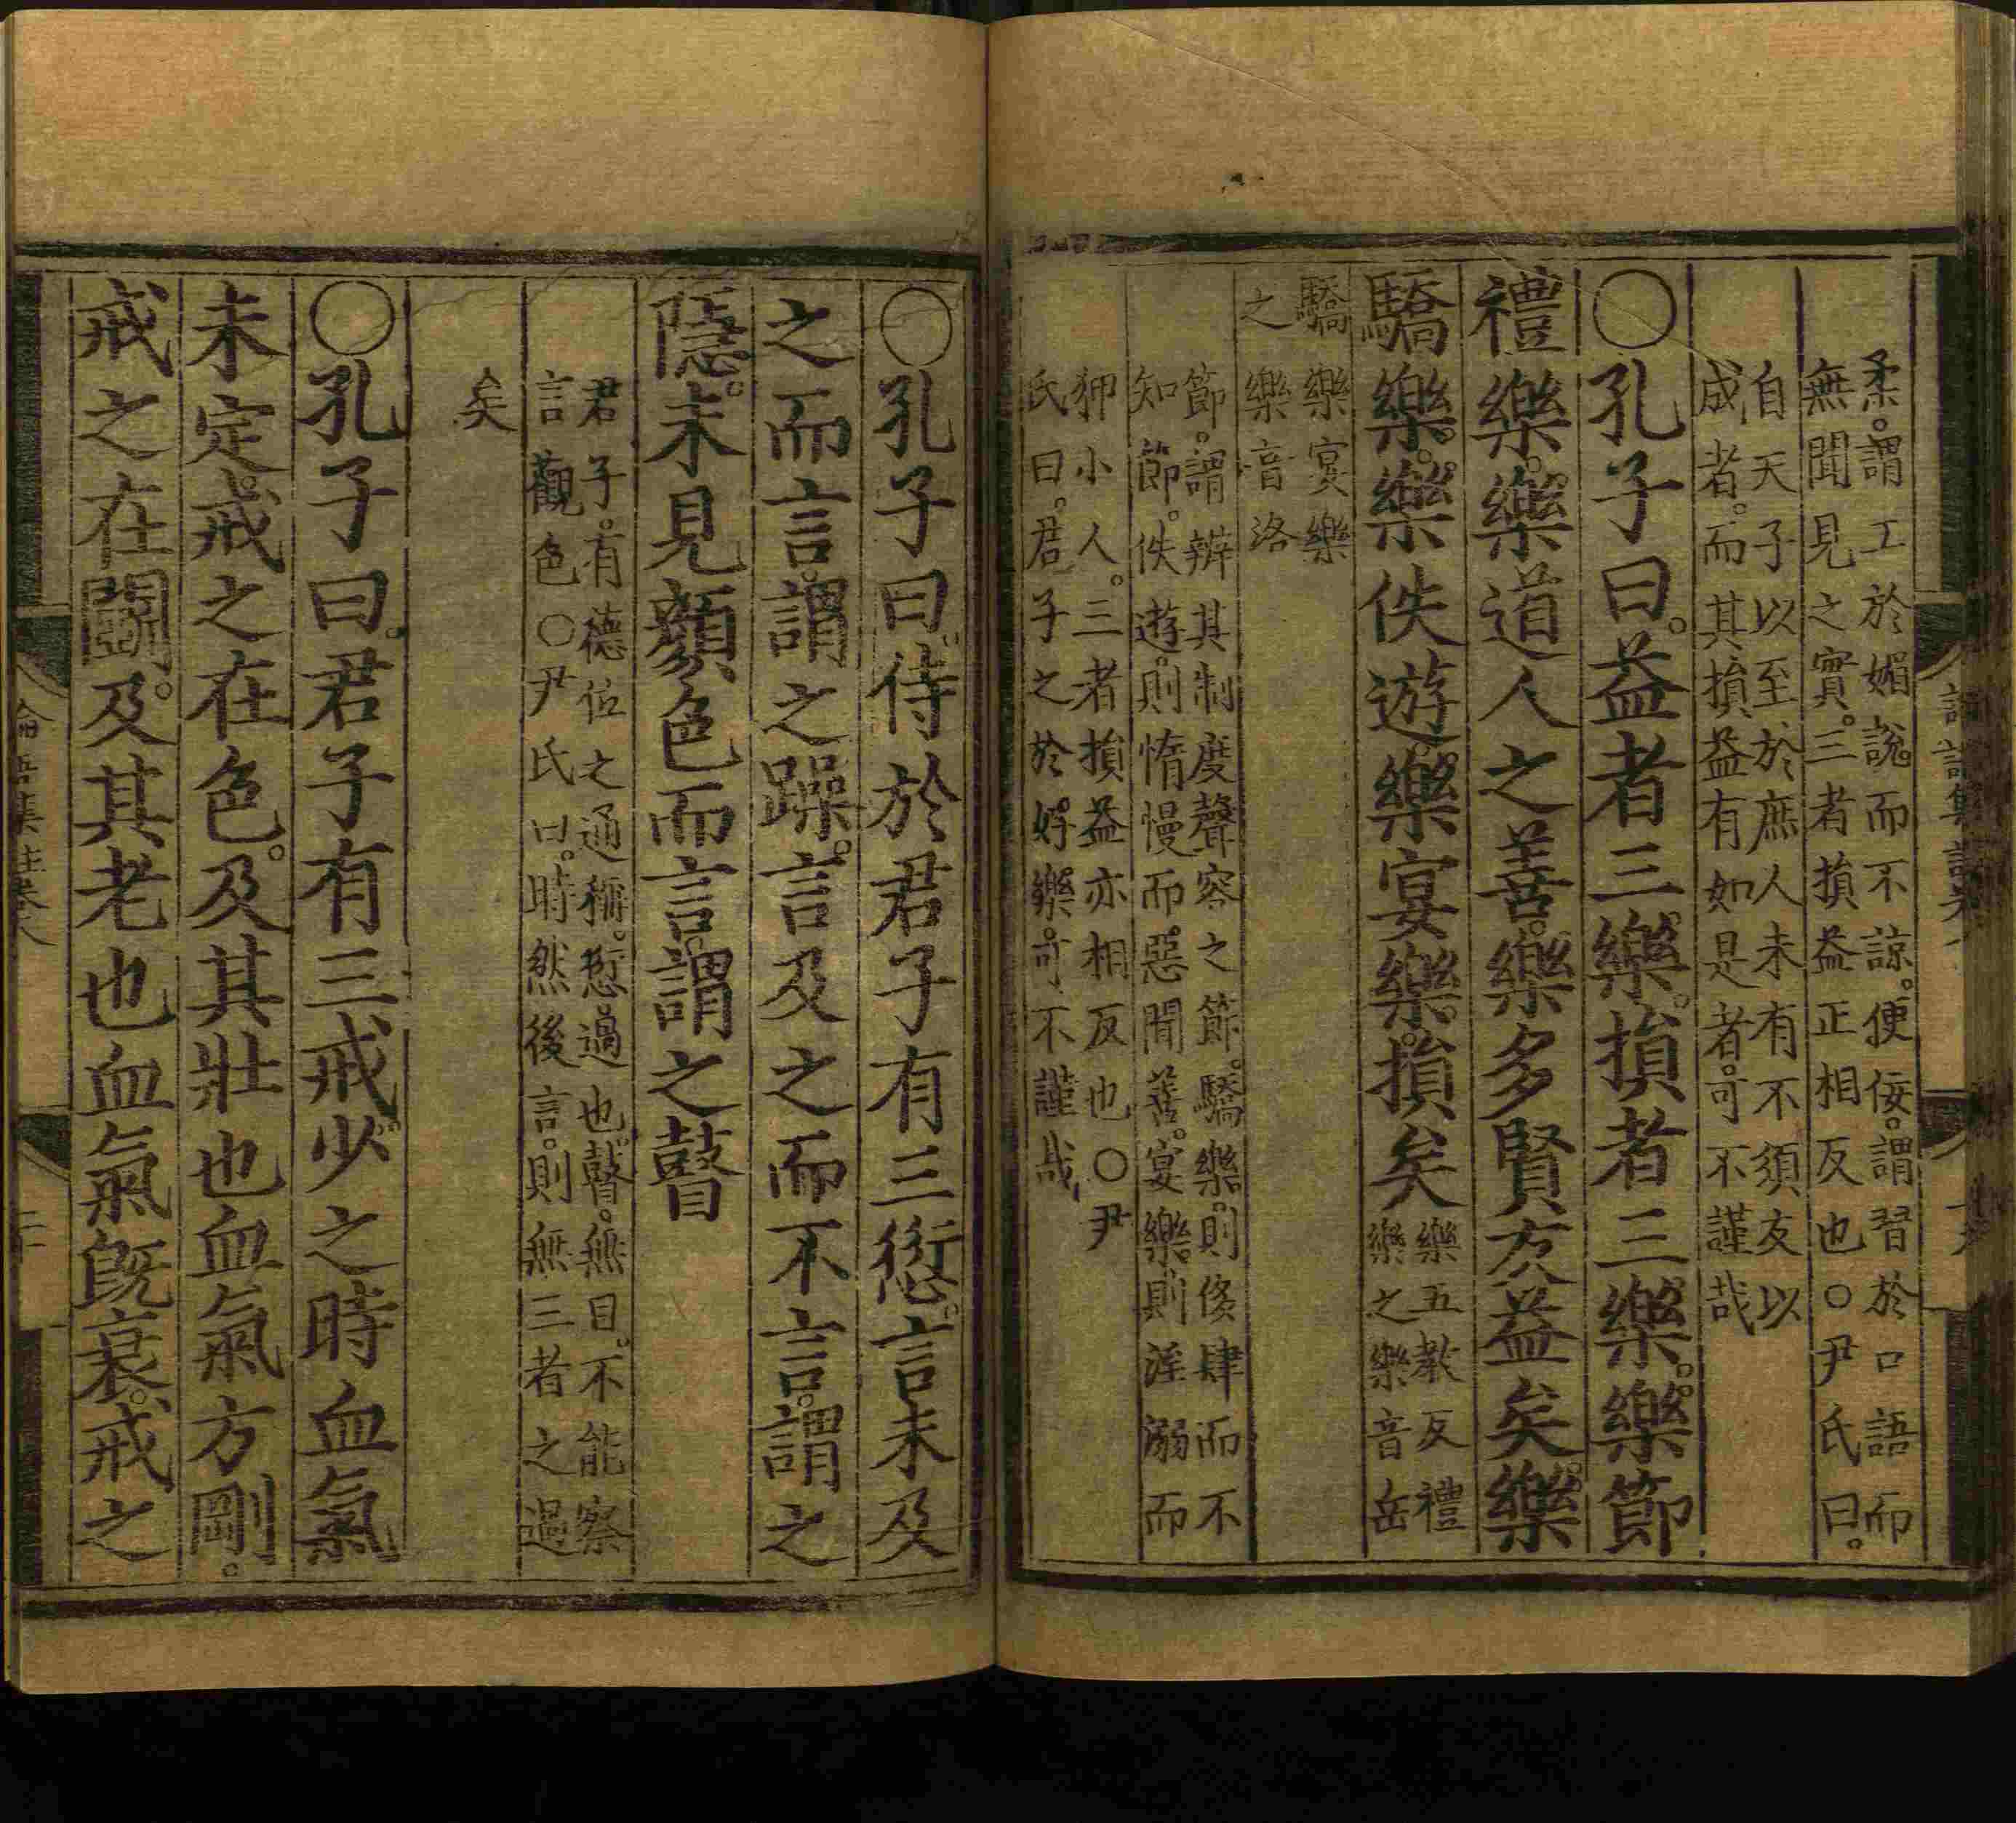 柔。謂工於媚說。而不諒。便佞。謂習於口語。而
無聞見之實。三者損益正相反也○尹氏曰。
自天子以至於庶人未有不須友以
成者。而其損益有如是者。可不謹哉
○孔子曰。益者三樂。損者三樂。樂節
禮樂。樂道人之善。樂多賢友益矣樂
驕樂。樂佚遊。樂宴樂。損矣
樂五教反禮
樂之樂音岳
驕樂宴樂
之樂音洛
節。謂辨其制度聲容之節。驕樂。則侈肆而不
知節。佚遊。則惰慢而惡聞善。宴樂則淫溺而
狎小人。三者損益亦相反也○尹
氏曰。君子之於好樂。可不謹哉
○孔子曰。侍於君子有三愆。言未及
之而言。謂之躁。言及之而不言。謂之
隱。未見顏色而言。謂之瞽
君子。有德位之通稱。愆。過也。瞽。無目。不能察
言觀色○尹氏曰。時然後言。則無三者之過
矣
○孔子曰。君子有三戒少之時血氣
未定。戒之在色。及其壯也血氣方剛。
戒之在鬬。及其老也血氣旣衰。戒之